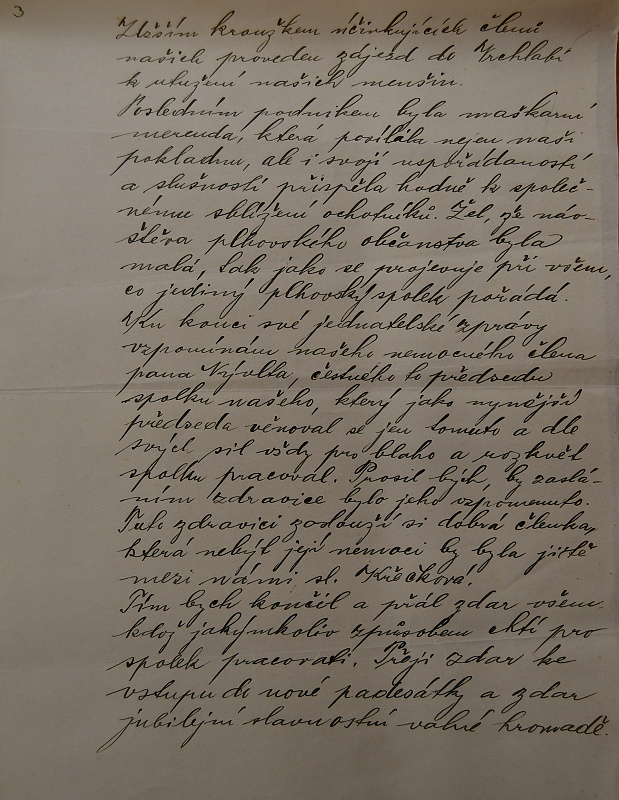 3
Užším kroužkem účinkujících členů
našich proveden zájezd do Vrchlabí
k utužení našich menšin.
Posledním podnikem byla maškarní
merenda, která posílila nejen naši
pokladnu, ale i svojí uspořádaností
a slušností přispěla hodně k společ-
nému sblížení ochotníků. Žel, že náv-
štěva plhovského občanstva byla
malá, tak jako se projevuje při všem,
co jediný plhovský spolek pořádá.
Ku konci své jednatelské zprávy
vzpomínám našeho nemocného člena
pana Nývlta, čestného to předsedu
spolku našeho, který jako nynější
předseda věnoval se jen tomuto a dle
svých sil vždy pro blaho a rozkvět
spolku pracoval. Prosil bych, by zaslá-
ním zdravice bylo jeho vzpomenuto.
Tuto zdravici zaslouží si dobrá členka,
která nebýt její nemoci by byla jistě
mezi námi, sl. Křečková.
Tím bych končil a přál zdar všem,
kdož jakýmkoliv způsobem chtí pro
spolek pracovati. Přeji zdar ke
vstupu do nové padesátky a zdar
jubilejní slavnostní valné hromadě.